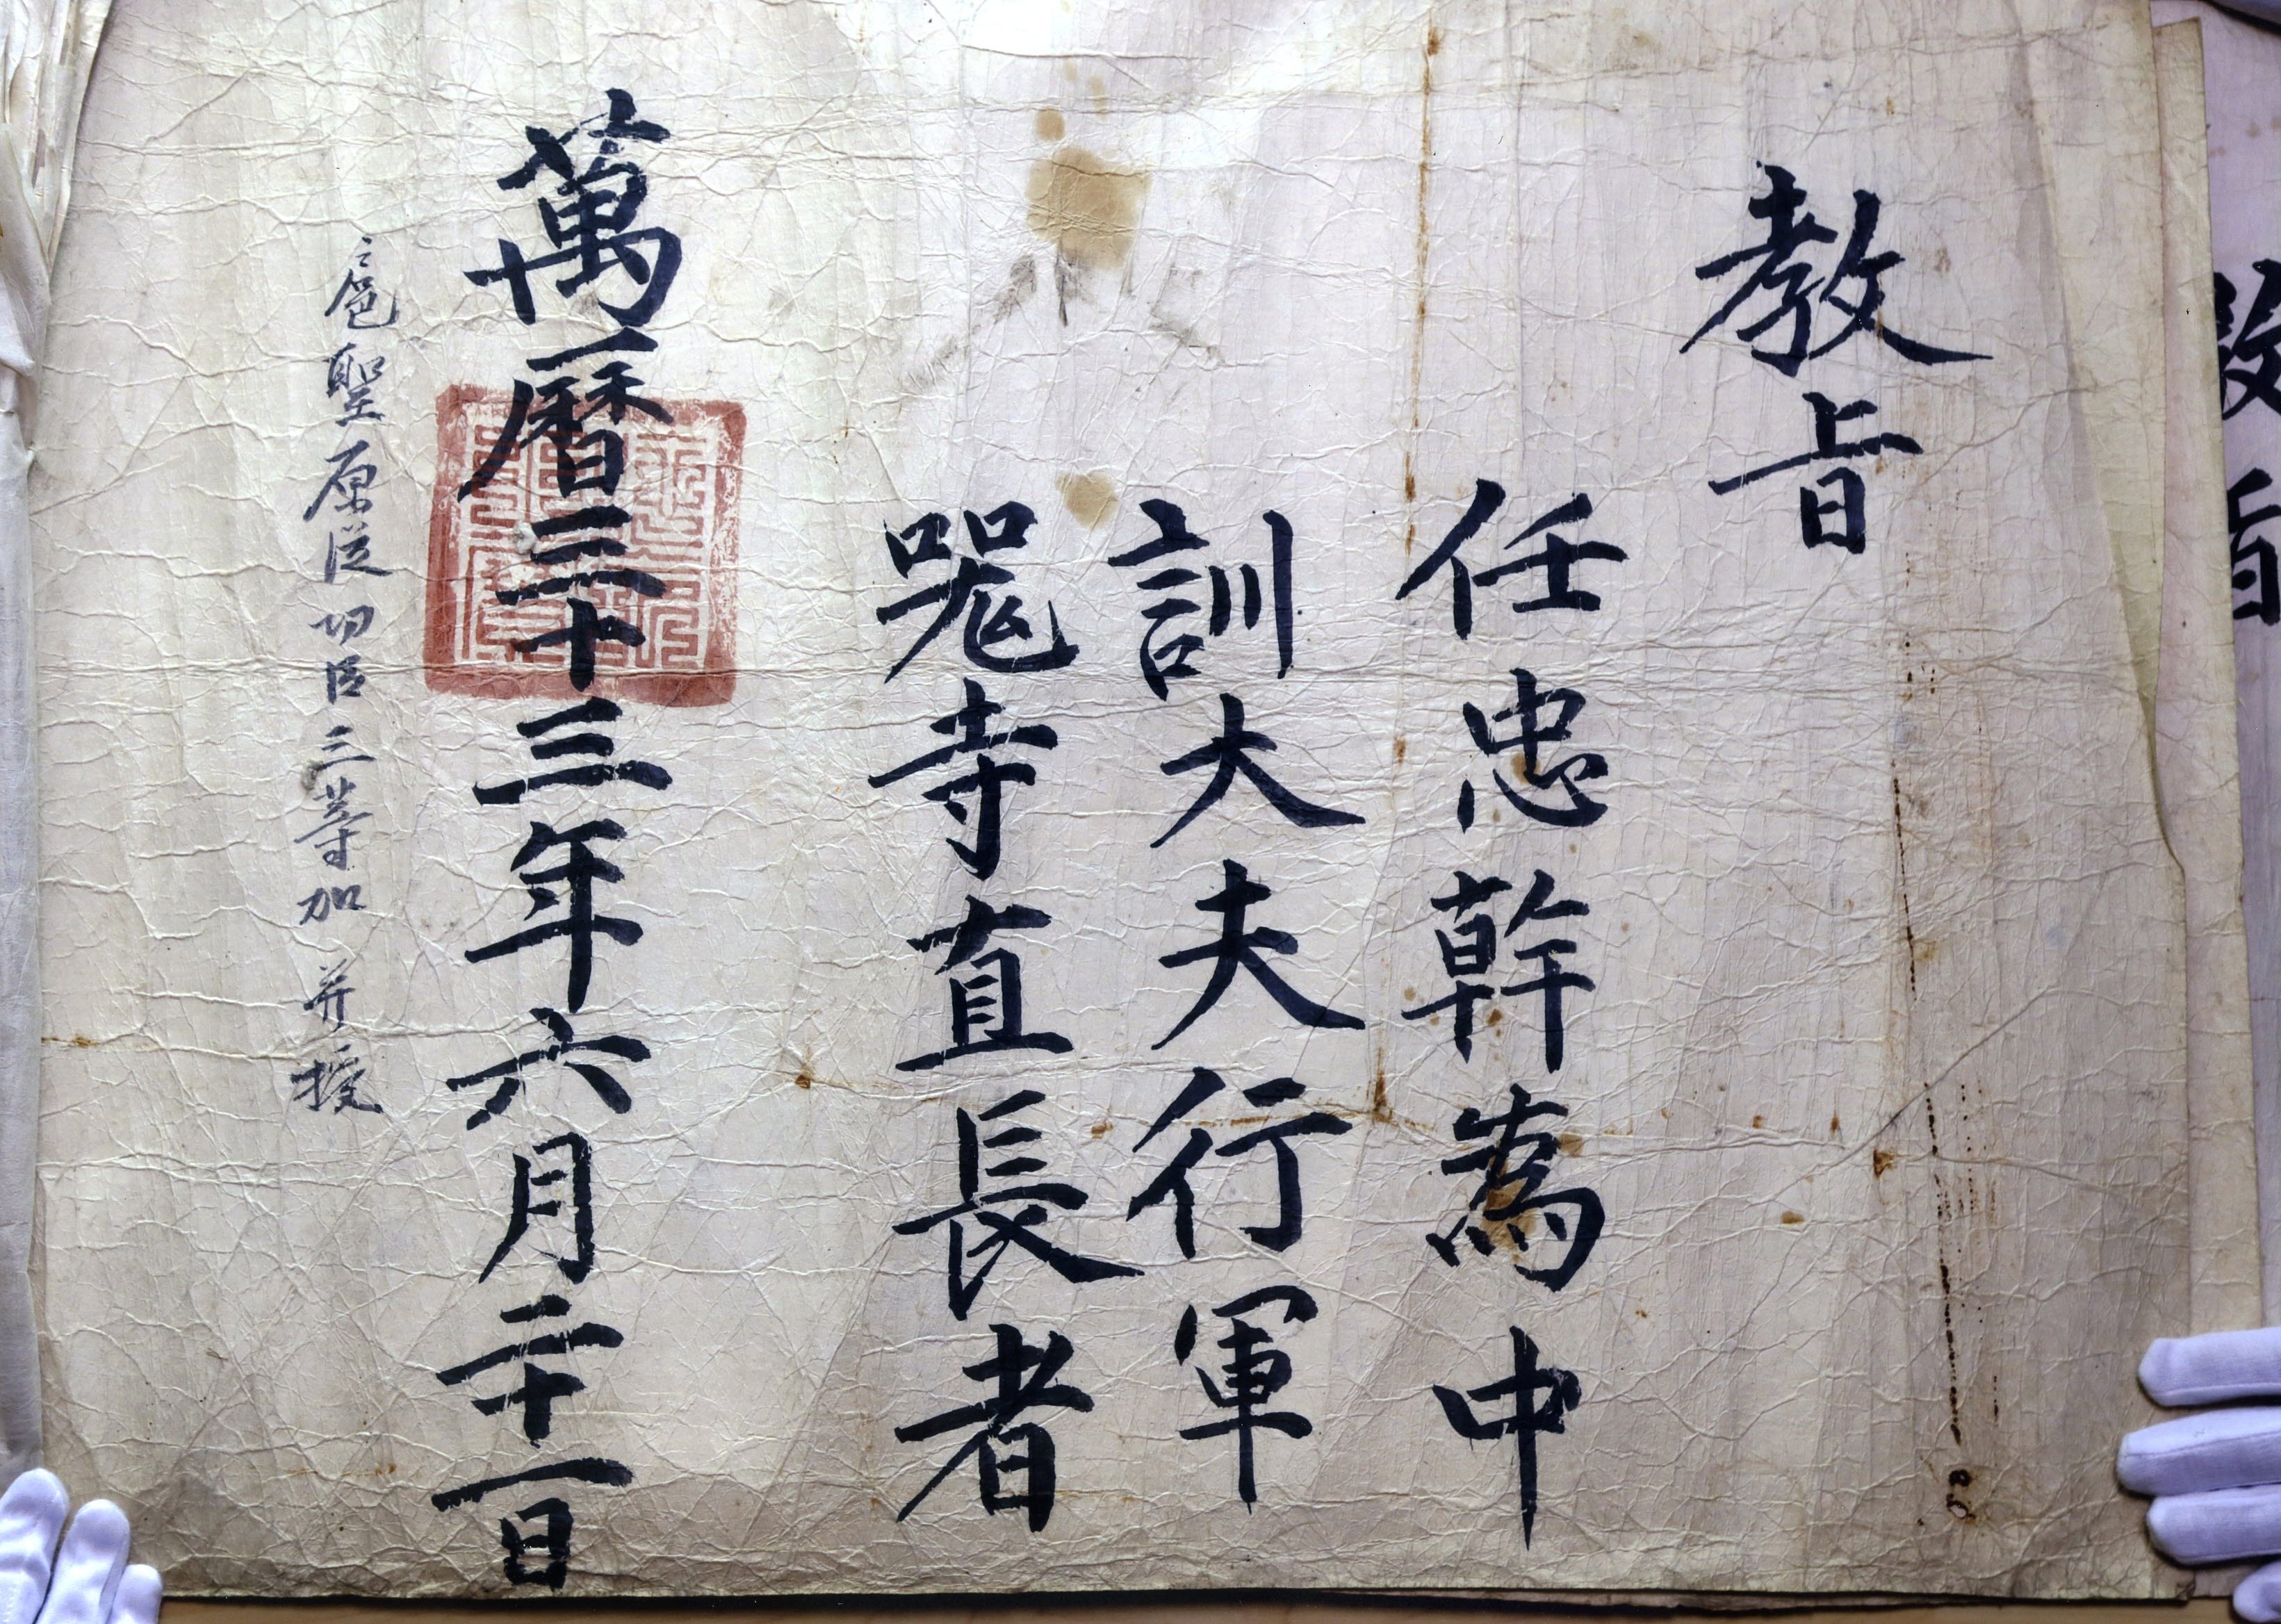 教旨
任忠幹為中
訓大夫行軍
器寺直長者
萬曆三十三年六月二十一日
扈聖原從功臣三等加并授